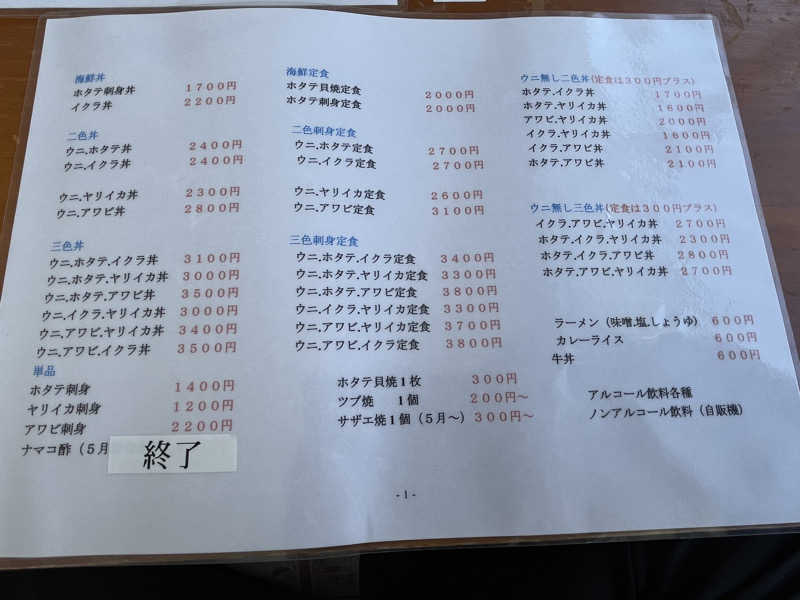 海鮮丼
ホタテ刺身丼 1700円
イクラ丼 2200円
二色丼
ウニ.ホタテ丼 2400円
ウニ.イクラ丼 2400円
ウニ.ヤリイカ丼 2300円
ウニ.アワビ丼 2800円
三色丼
ウニ.ホタテ.イクラ丼 3100円
ウニ.ホタテ.ヤリイカ丼 3000円
ウニ.ホタテ.アワビ丼 3500円
ウニ.イクラ.ヤリイカ丼 3000円
ウニ.アワビ.ヤリイカ丼 3400円
ウニ.アワビ.イクラ丼 3500円
単品
ホタテ刺身 1400円
ヤリイカ刺身 1200円
アワビ刺身 2200円
ナマコ酢（5月
終了
海鮮定食
ホタテ貝焼定食 2000円
ホタテ刺身定食 2000円
二色刺身定食
ウニ.ホタテ定食 2700円
ウニ.イクラ定食 2700円
ウニ.ヤリイカ定食 2600円
ウニ.アワビ定食 3100円
三色刺身定食
ウニ.ホタテ.イクラ定食 3400円
ウニ.ホタテ.ヤリイカ定食 3300円
ウニ.ホタテ.アワビ定食 3800円
ウニ.イクラ.ヤリイカ定食 3300円
ウニ.アワビ.ヤリイカ定食 3700円
ウニ.アワビ.イクラ定食 3800円
ホタテ貝焼1枚 300円
ツブ焼 1個 200円～
サザエ焼1個（5月～）300円～
ウニ無し二色丼(定食は300円プラス)
ホタテ.イクラ丼 1700円
ホタテ.ヤリイカ丼 1600円
アワビ.ヤリイカ丼 2000円
イクラ.ヤリイカ丼 1600円
イクラ.アワビ丼 2100円
ホタテ.アワビ丼 2100円
ウニ無し三色丼(定食は300円プラス)
イクラ.アワビ.ヤリイカ丼 2700円
ホタテ.イクラ.ヤリイカ丼 2300円
ホタテ.イクラ.アワビ丼 2800円
ホタテ.アワビ.ヤリイカ丼 2700円
ラーメン（味噌.塩.しょうゆ）600円
カレーライス 600円
牛丼 600円
アルコール飲料各種
ノンアルコール飲料（自販機）
- 1 -